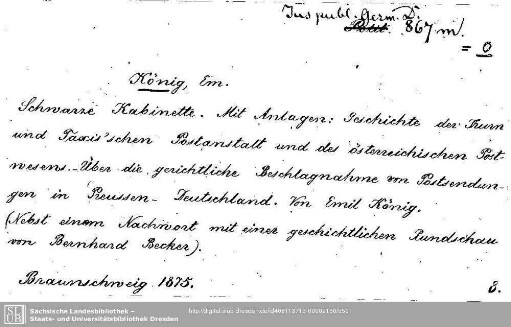 Jus publ. Germ. D.
867 m.
= 0
König, Em.
Schwarze Kabinette. Mit Anlagen: Geschichte der Thurn
und Taxis'schen Postanstalt und des österreichischen Post-
wesens. - Über die gerichtliche Beschlagnahme von Postsendun-
gen in Preussen - Deutschland. Von Emil König.
(Nebst einem Nachwort mit einer geschichtlichen Rundschau
von Bernhard Becker).
Braunschweig 1875. 8.
Sächsische Landesbibliothek –
Staats- und Universitätsbibliothek Dresden